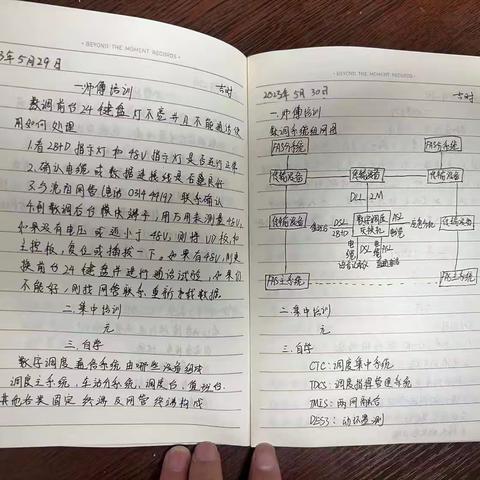 · BEYOND THE MOMENT RECORDS ·
3年5月29日
一.师傅培训 1小时
数调前台24键盘灯不亮并且不能通话使
用如何处理
1.看2B+D指示灯和48V指示灯是否运行正常
2.确认电缆或数据连接线是否良好
联系确认
4.到数调后台模块端子,用万用表测量48V,
如果没有电压或远小于48V,则将
主控板,复位或插拔一下。如果有48V,则更
换前台24键盘并进行通话试验,如果仍
不能好,则找网管联系,重新
二.集中培训
无
三.自学
数字调度通信系统由哪些设备组成
调度主系统,车站分系统,调度台,值班台.
其他各类固定终端及网管终端构成
· BEYOND THE MOMENT RECORDS ·
2023年5月30日 1小时
一.师傅培训
数调系统组网图
FAS分系统 FAS分系统
传输设备 传输设备 传输设备
DLL 2M
传输设备 DSL 2B+D 数字调度交换机 DSL 传输设备
电缆 DSL 电缆 DSL
FAS主系统 FAS主系统
二.集中培训
无
三.自学
CTC:调度集中系统
TDCS:调度指挥管理系统
TMIS:
DES3:动环监测